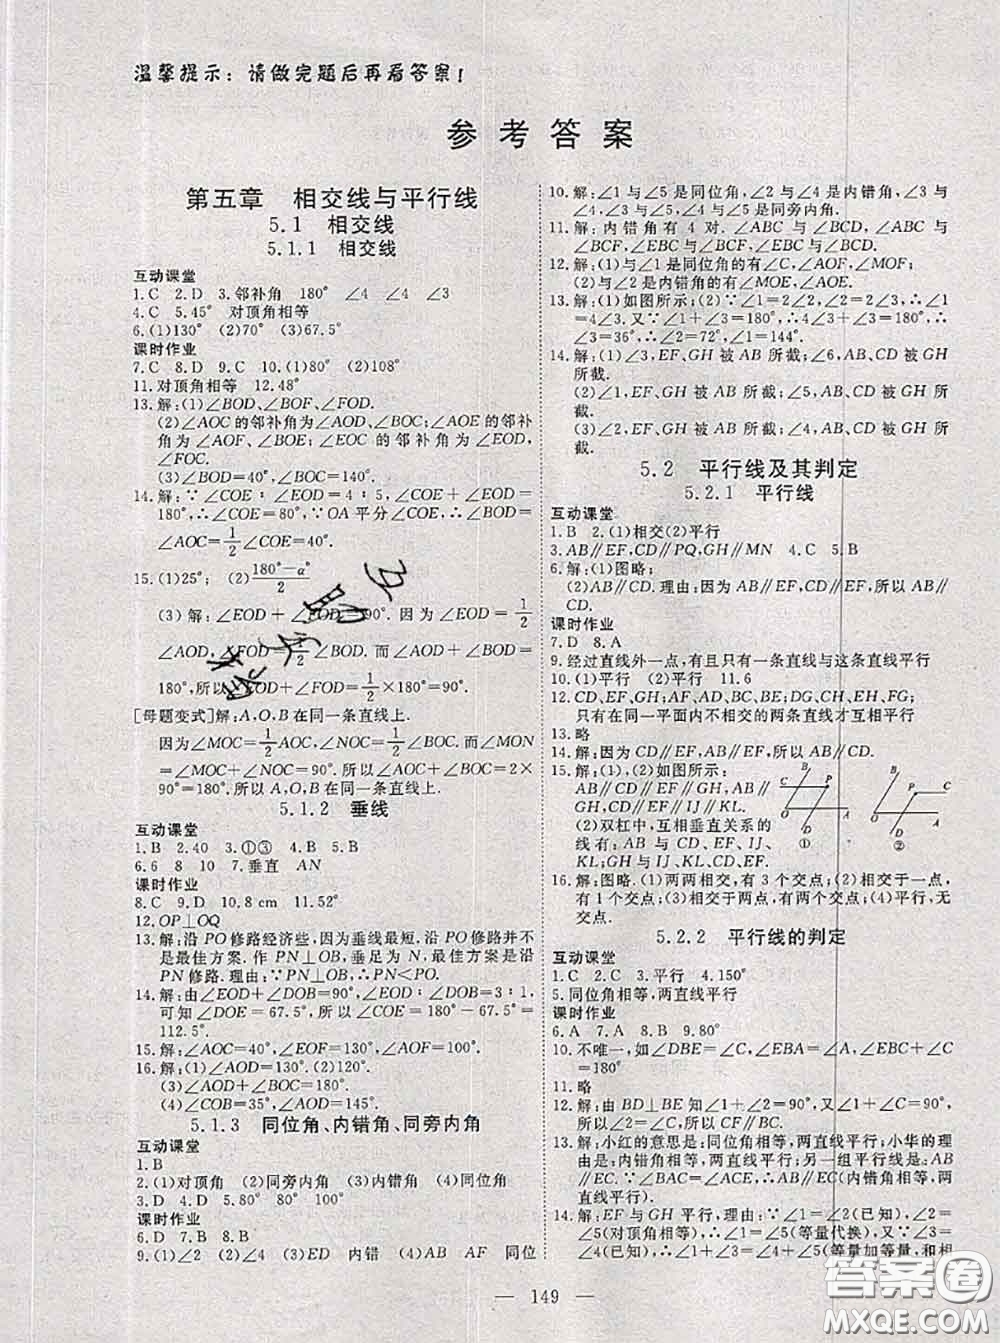 温馨提示：请做完题后再看答案！
参考答案
第五章　相交线与平行线
5.1　相交线
5.1.1　相交线
互动课堂
1.C　2.D　3.邻补角　180°　∠4　∠4　∠3
4.C　5.45°　对顶角相等
6.(1)130°　(2)70°　(3)67.5°
课时作业
7.C　8.D　9.C　10.(1)80°　(2)108°
11.对顶角相等　12.48°
13.解:(1)∠BOD、∠BOF、∠FOD.
(2)∠AOC的邻补角为∠AOD、∠BOC;∠AOE的邻补
角为∠AOF、∠BOE;∠EOC的邻补角为∠EOD,
∠FOC.
(3)∠BOD=40°,∠BOC=140°.
14.解:∵∠COE∶∠EOD=4∶5,∠COE+∠EOD=
180°,∴∠COE=80°,∵OA平分∠COE,∴
∠AOC=1/2∠COE=40°.
15.(1)25°;　(2)(180°-α°)/2
(3)解:∠EOD+∠FOD=90°.因为∠EOD=1/2
∠AOD,∠FOD=1/2∠BOD.而∠AOD+∠BOD=
180°,所以∠EOD+∠FOD=1/2×180°=90°.
[母题变式]解:A,O,B在同一条直线上.
因为∠MOC=1/2∠AOC,∠NOC=1/2∠BOC.而∠MON
=∠MOC+∠NOC=90°.所以∠AOC+∠BOC=2×
90°=180°.所以A,O,B在同一条直线上.
5.1.2　垂线
互动课堂
1.B　2.40　3.①③　4.B　5.B
6.6　8　10　7.垂直　AN
课时作业
8.C　9.D　10.8 cm　11.52°
12.OP⊥OQ
13.解:沿PO修路经济些,因为垂线最短,沿PO修路并不
是最佳方案.作PN⊥OB,垂足为N,最佳方案是沿
PN修路.理由:∵PN⊥OB,∴PN<PO.
14.解:由∠EOD+∠DOB=90°,∠EOD∶∠DOB=3∶1,
可知∠DOE=67.5°,所以∠COE=180°-67.5°=
112.5°.
15.解:∠AOC=40°,∠EOF=130°,∠AOF=100°.
16.解:(1)∠AOD=130°.(2)120°.
(3)∠AOD+∠BOC=180°.
(4)∠COB=35°,∠AOD=145°.
5.1.3　同位角、内错角、同旁内角
互动课堂
1.B
2.(1)对顶角　(2)同旁内角　(3)内错角　(4)同位角
3.D　4.D　5.80°　80°　100°
课时作业
6.D　7.B　8.B
9.(1)∠2　(2)∠4　(3)ED　内错　(4)AB　AF　同位
10.解:∠1与∠5是同位角,∠2与∠4是内错角,∠3与
∠4,∠3与∠5,∠4与∠5是同旁内角.
11.解:内错角有4对.∠ABC与∠BCD,∠ABC与
∠BCF,∠EBC与∠BCF,∠EBC与∠BCD.
12.解:(1)与∠1是同位角的有∠C,∠AOF,∠MOF;
(2)与∠2是内错角的有∠MOE,∠AOE.
13.解:(1)如图所示;(2)∵∠1=2∠2=2∠3,∴∠1
=4∠3.又∵∠1+∠3=180°,∴4∠3+∠3=180°,∴
∠3=36°,∴∠2=72°,∠1=144°.
14.解:(1)∠3,EF、GH被AB所截;∠6,AB、CD被EF
所截.
(2)∠1,EF、GH被AB所截;∠5,AB、CD被GH所
截.
(3)∠2,EF、GH被AB所截;∠4,AB、CD被GH所截.
5.2　平行线及其判定
5.2.1　平行线
互动课堂
1.B　2.(1)相交(2)平行
3.AB∥EF,CD∥PQ,GH∥MN　4.C　5.B
6.解:(1)图略;
(2)AB∥CD.理由:因为AB∥EF,CD∥EF,所以AB∥
CD.
课时作业
7.D　8.A
9.经过直线外一点,有且只有一条直线与这条直线平行
10.(1)平行　(2)平行　11.6
12.CD,EF,GH;AD,BC,BE;DG,CH,EH,FG;
只有在同一平面内不相交的两条直线才互相平行
13.略
14.解:因为CD∥EF,AB∥EF,所以AB∥CD.
15.解:(1)如图所示:
AB∥CD∥EF∥
GH,EF∥IJ∥KL.
(2)双杠中,互相垂直关系的
线有:AB与CD、EF、IJ、
KL;GH与IJ、KL、CD、EF.
B C P O A D ①
B P C O A D ②
16.解:图略.(1)两两相交,有3个交点;(2)相交于一点,
有1个交点;(3)其中两条平行,有两个交点;(4)平行,无
交点.
5.2.2　平行线的判定
互动课堂
1.C　2.C　3.平行　4.150°
5.同位角相等,两直线平行
课时作业
6.A　7.A　8.B　9.80°
10.不唯一,如∠DBE=∠C,∠EBA=∠A,∠EBC+∠C=
180°
11.略
12.解:由BD⊥BE知∠1+∠2=90°,又∠1+∠C=90°,
所以∠2=∠C,所以CF∥BC.
13.解:小红的意思是:同位角相等,两直线平行,小华的理
由是:内错角相等,两直线平行;另一组平行线是:
∠BAC=∠ECD,所以AB∥CE(内错角相等,两
直线平行).
14.解:EF与GH平行,理由:∵∠1=∠2(已知),∠2=
∠5(对顶角相等),∴∠1=∠5(等量代换),又∵∠3=
∠4(已知),∴∠1+∠3=∠4+∠5(等量加等量,和相
149
答案圈
MXQE.COM